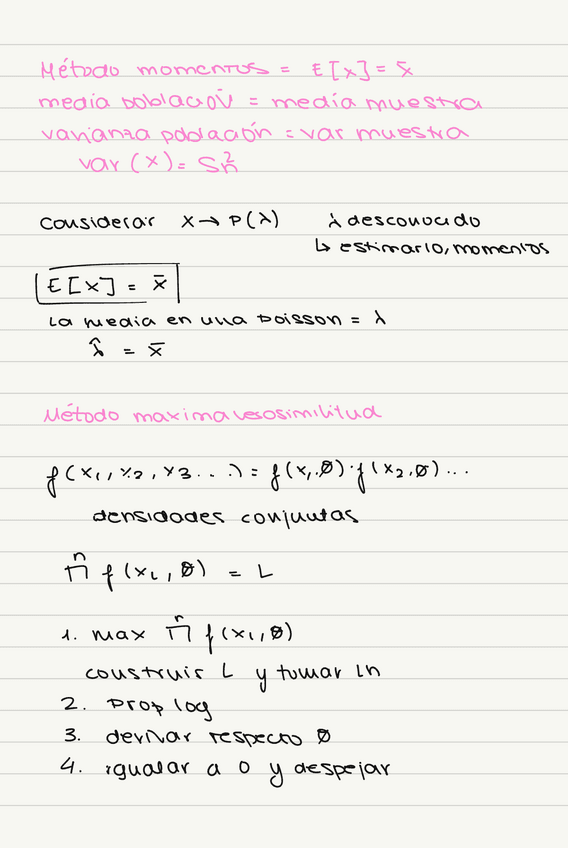 Método momentos = E[x] = x̄
media población = media muestra
varianza población = var muestra
var (x) = Sn²
considerar x → P(λ) λ desconocido
↳ estimarlo, momentos
E[x] = x̄
la media en una poisson = λ
λ̂ = x̄
Método maxima verosimilitud
f(x₁, x₂, x₃ ...) = f(x₁, Ø) · f(x₂, Ø) ...
densidades conjuntas
n
∏ f(xᵢ, Ø) = L
n
1. max ∏ f(xᵢ, Ø)
construir L y tomar ln
2. Prop log
3. derivar respecto Ø
4. igualar a 0 y despejar